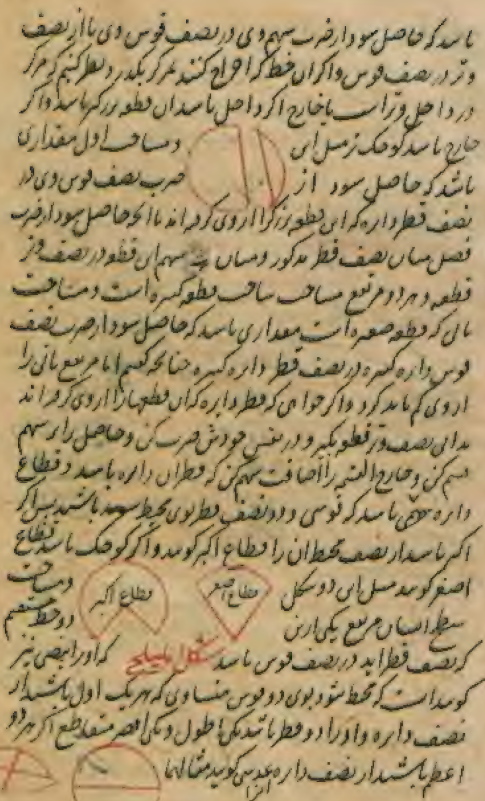 باشد که حاصل شود از ضرب سهم وی در نصف قوس وی یا از نصف
وتر در نصف قوس و اگر آن خط که اخراج کنند بمرکز بگذرد نظر کنیم که مرکز
در داخل وتر است یا خارج اگر داخل باشد آن قطعه بزرگتر باشد و اگر
خارج باشد کوچک تر مثل این و مساحت اول مقداری
باشد که حاصل شود از ضرب نصف قوس وی در
نصف قطر دایره که این قطعه بزرگ را از وی گرفته اند با آنچه حاصل شود از ضرب
فضل میان نصف قطر مذکور و میان سهم این قطعه در نصف وتر
قطعه و هر دو مربع مساحت قطعه کبیره است و مساحت
ثانی که قطعه صغیره است مقداری باشد که حاصل شود از ضرب نصف
قوس دایره کبیره در نصف قطر دایره کبیره چنانچه گفتیم اما مربع ثانی را
از وی کم باید کرد و اگر خواهی که قطر دایره که آن قطعها را از وی گرفته اند
بدانی نصف وتر قطعه بگیر و در نفس خودش ضرب کن و حاصل را بر سهم
قسم کن و خارج القسمه را اضافت سهم کن که قطر آن دایره باشد و قطاع
دایره سطحی باشد که قوسی و دو نصف قطر بوی محیط شده باشند پس اگر
اکبر باشد از نصف محیط آن را قطاع اکبر گویند و اگر کوچک باشد قطاع
اصغر گویند مثل این دو شکل قطاع اصغر قطاع اکبر و مساحت
مربع یکی ازین دو خط مستقیم
که نصف قطر اند در نصف قوس باشد شکل هلیلجی که او را بیضی نیز
گویند است که محیط شود بوی دو قوس متساوی که هر یک اول باشد از
نصف دایره و او را دو قطر باشد یکی اطول و یکی اقصر متقاطع اگر هر دو
اعظم باشد از نصف دایره عدسی گویند مثالهما